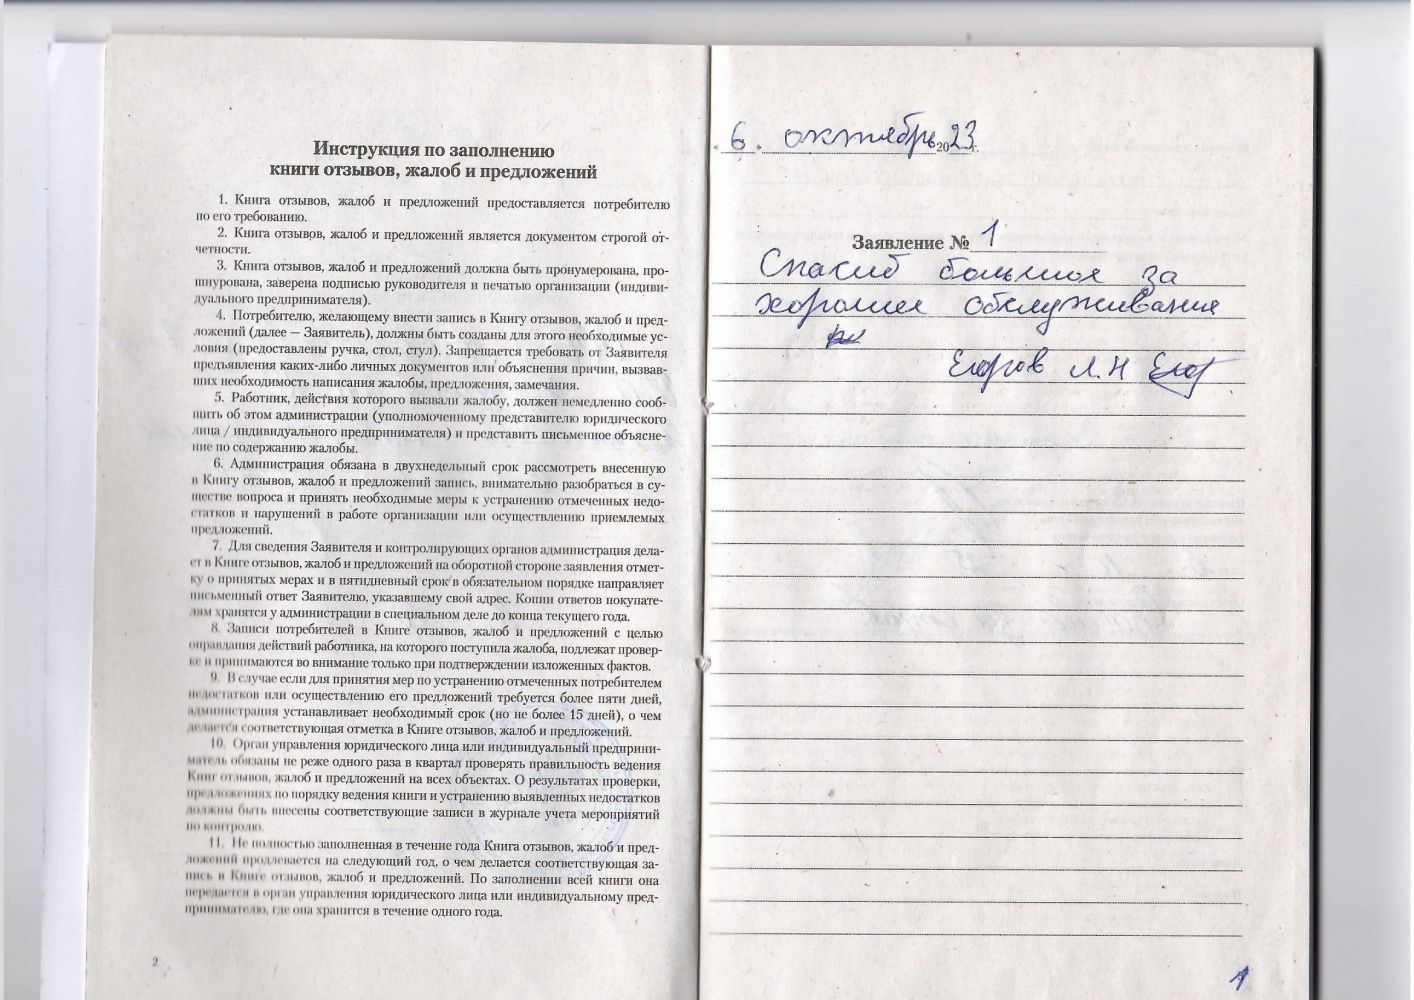 Инструкция по заполнению
книги отзывов, жалоб и предложений
1. Книга отзывов, жалоб и предложений предоставляется потребителю
по его требованию.
2. Книга отзывов, жалоб и предложений является документом строгой от-
четности.
3. Книга отзывов, жалоб и предложений должна быть пронумерована, про-
шнурована, заверена подписью руководителя и печатью организации (индиви-
дуального предпринимателя).
4. Потребителю, желающему внести запись в Книгу отзывов, жалоб и пред-
ложений (далее — Заявитель), должны быть созданы для этого необходимые ус-
ловия (предоставлены ручка, стол, стул). Запрещается требовать от Заявителя
предъявления каких-либо личных документов или объяснения причин, вызвав-
ших необходимость написания жалобы, предложения, замечания.
5. Работник, действия которого вызвали жалобу, должен немедленно сооб-
щить об этом администрации (уполномоченному представителю юридического
лица / индивидуального предпринимателя) и представить письменное объясне-
ние по содержанию жалобы.
6. Администрация обязана в двухнедельный срок рассмотреть внесенную
в Книгу отзывов, жалоб и предложений запись, внимательно разобраться в су-
ществе вопроса и принять необходимые меры к устранению отмеченных недо-
статков и нарушений в работе организации или осуществлению приемлемых
предложений.
7. Для сведения Заявителя и контролирующих органов администрация дела-
ет в Книге отзывов, жалоб и предложений на оборотной стороне заявления отмет-
ку о принятых мерах и в пятидневный срок в обязательном порядке направляет
письменный ответ Заявителю, указавшему свой адрес. Копии ответов покупате-
лям хранятся у администрации в специальном деле до конца текущего года.
8. Записи потребителей в Книге отзывов, жалоб и предложений с целью
оправдания действий работника, на которого поступила жалоба, подлежат провер-
ке и принимаются во внимание только при подтверждении изложенных фактов.
9. В случае если для принятия мер по устранению отмеченных потребителем
недостатков или осуществлению его предложений требуется более пяти дней,
администрация устанавливает необходимый срок (но не более 15 дней), о чем
делается соответствующая отметка в Книге отзывов, жалоб и предложений.
10. Орган управления юридического лица или индивидуальный предприни-
матель обязаны не реже одного раза в квартал проверять правильность ведения
Книг отзывов, жалоб и предложений на всех объектах. О результатах проверки,
предложениях по порядку ведения книги и устранению выявленных недостатков
должны быть внесены соответствующие записи в журнале учета мероприятий
по контролю.
11. Не полностью заполненная в течение года Книга отзывов, жалоб и пред-
ложений продлевается на следующий год, о чем делается соответствующая за-
пись в Книге отзывов, жалоб и предложений. По заполнении всей книги она
передается в орган управления юридического лица или индивидуальному пред-
принимателю, где она хранится в течение одного года.
2
6. октябрь 2023 г.
Заявление № 1
Спасиб большое за
хорошее обслуживание
Егоров Л.Н
1